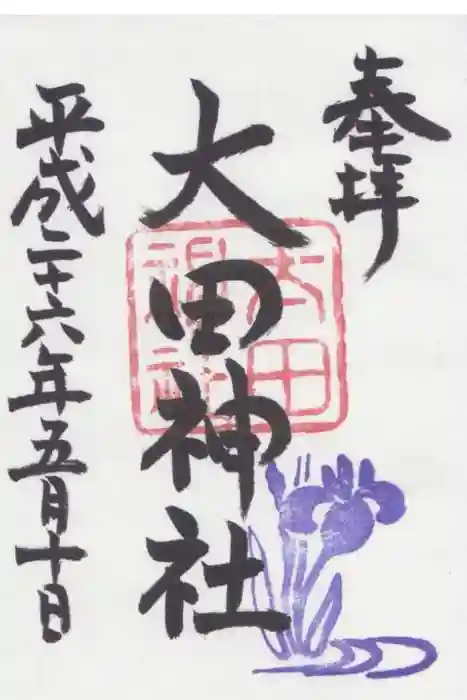 奉拝
大田神社
大田神社
平成二十六年五月十日